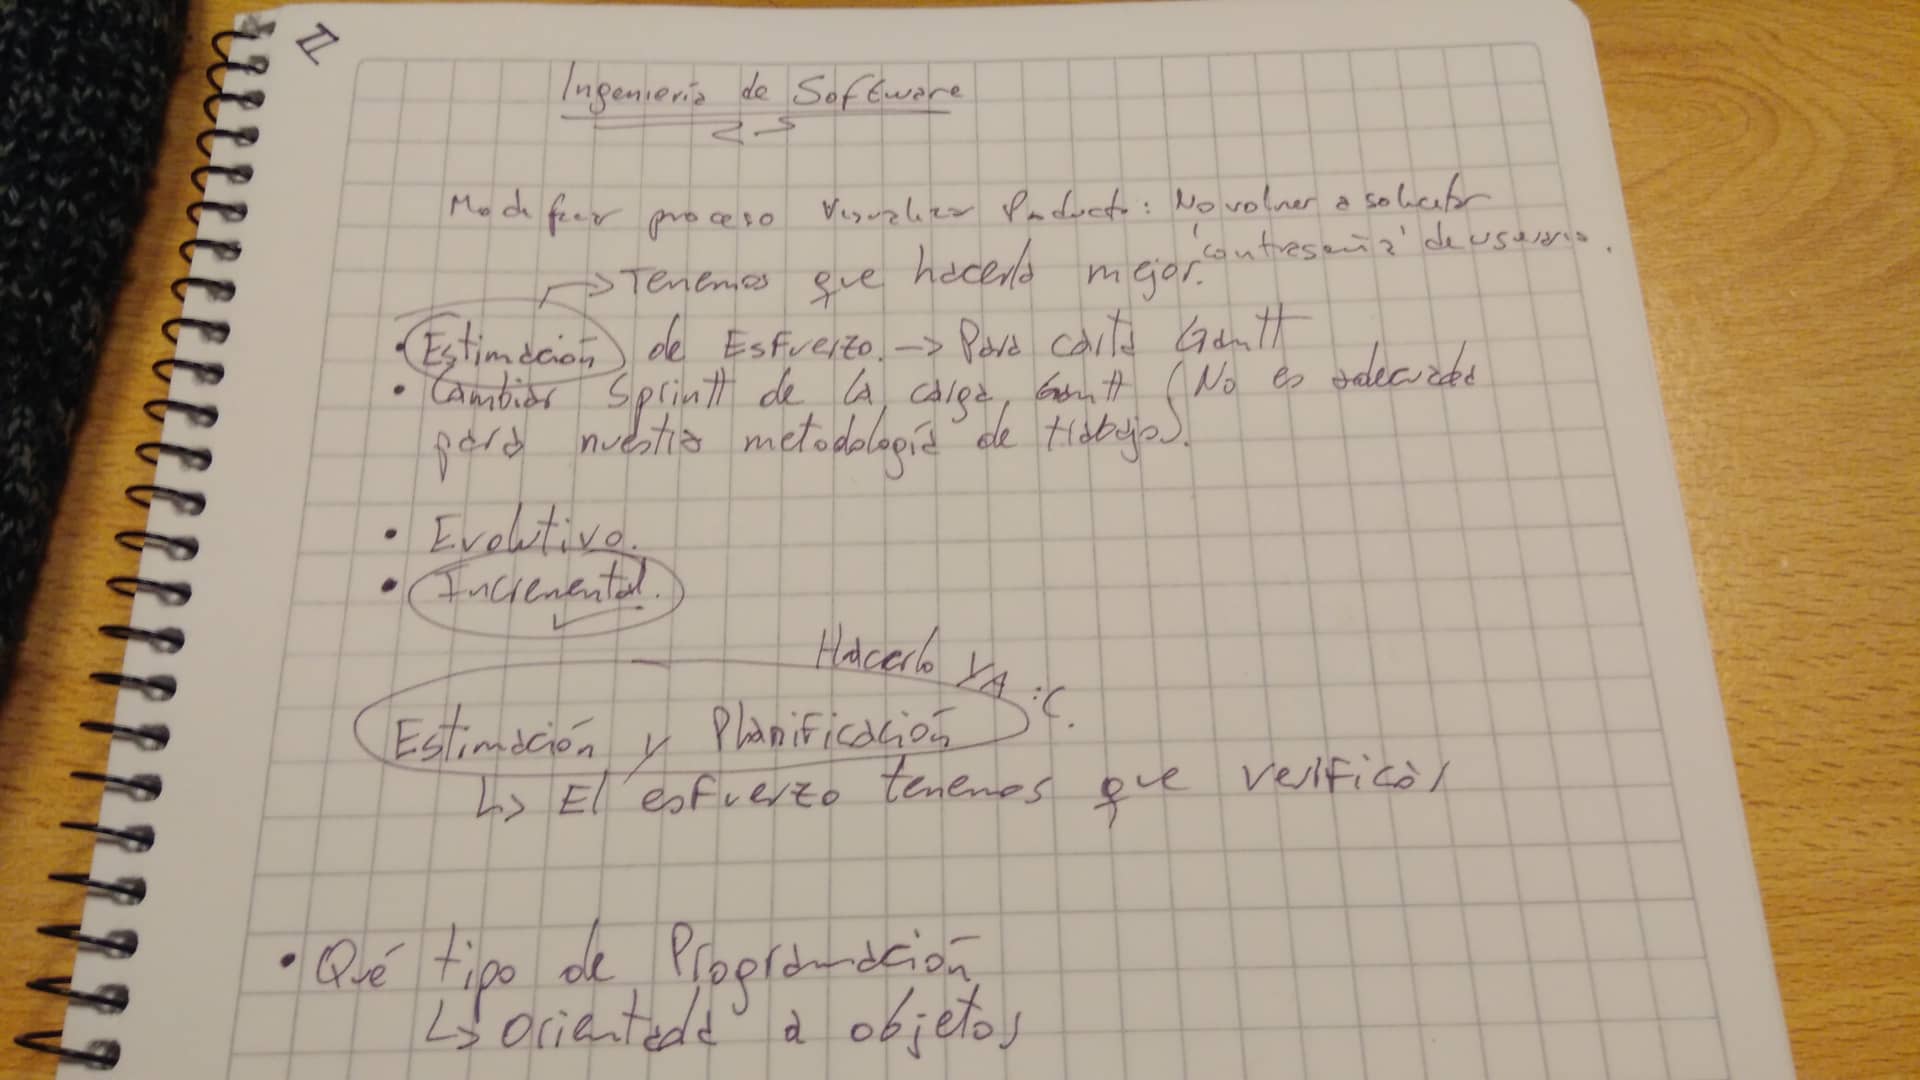 Ingeniería de Software
Modificar proceso Visualizar Producto: No volver a solicitar
'contraseña' de usuario.
→ Tenemos que hacerla mejor.
• Estimación de Esfuerzo. → Para carta Gantt
• Cambiar Sprintt de la carga Gantt (No es adecuada
para nuestra metodología de trabajo).
• Evolutivo.
• Incremental.
Hacerlo YA :C.
Estimación y Planificación
↳ El esfuerzo tenemos que verificar
• Qué tipo de Programación
↳ Orientada a objetos